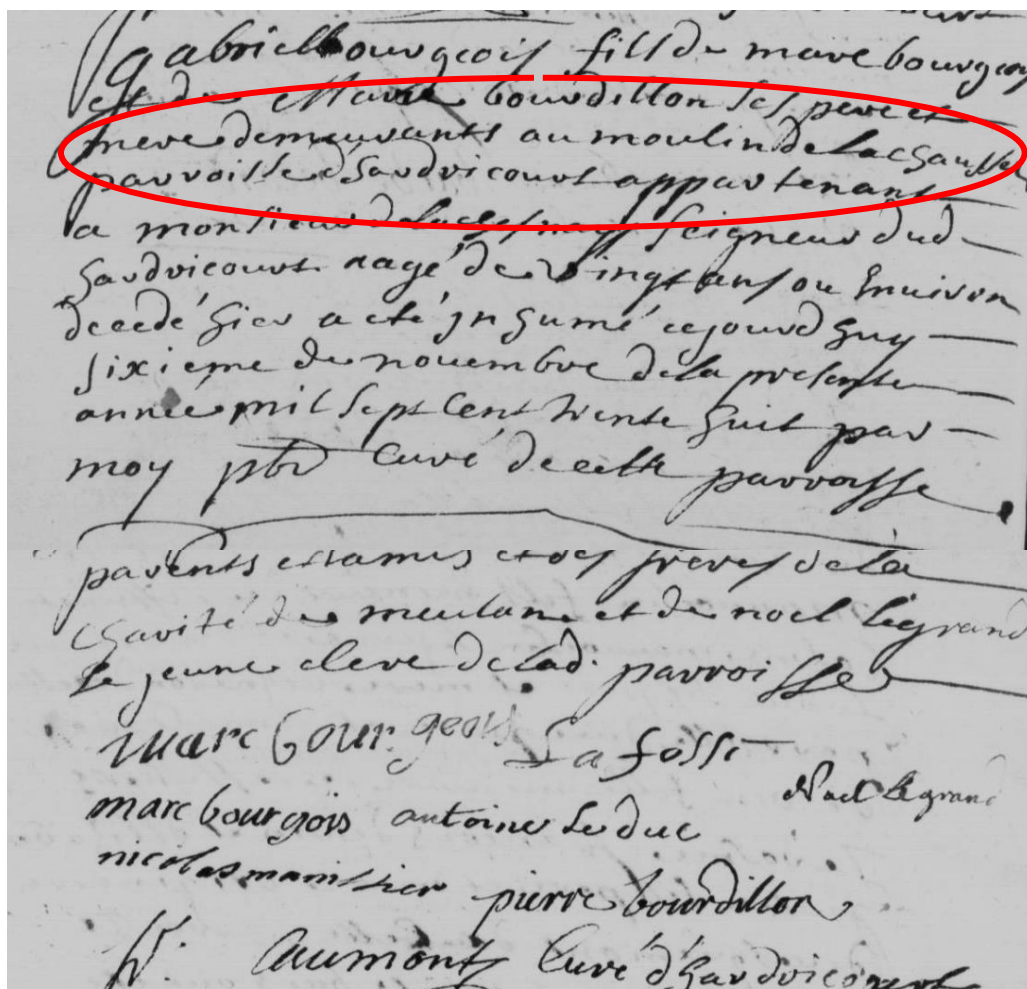 gabriel bourgeois fills de marc bourgeois
et de Marie bourdillon ses pere et
mere demeurants au moulin de la chaussée
parroisse d'hardricourt appartenant
a monsieur seigneur dud
hardricourt aagé de vingt ans ou Environ
decedé hier a eté jnhumé cejourdhuy
sixieme de nouembre de la presente
année mil sept cent trente huit par
moy pbr Curé de cette parroisse
parents et amis et des freres de la
charité de meulan et de noel legrand
le jeune clerc de lad. parroisse
marc bourgeois La fosse
Noel legrand
marc bourgois antoine Leduc
nicolas
pierre bourdillon
Caumont Curé d'hardricourt